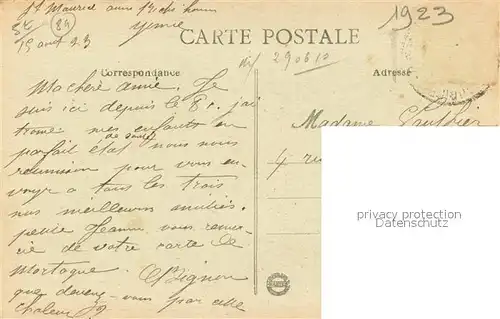 St Maurice aux Riches hommes
Yonne
15 aout 23
84
1923
CARTE POSTALE
290610
Correspondance
Adresse
Ma chère amie. Je
suis ici depuis le 8. j'ai
trouvé mes enfants en
parfait état de santé nous nous
reunission pour vous en-
voyer a tous les trois
nos meilleures amitiés.
petite Jeanne vous remer-
cie de votre carte de
Mortagne.
que devenez-vous par cette
chaleur
Madame Gauthier
4 rue
privacy protection
www.delcampe.net